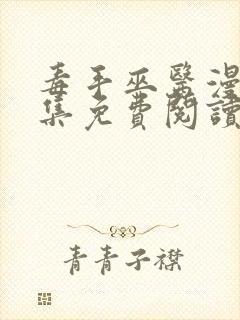 毒手巫醫漫
集免費閱讀
青青子襟